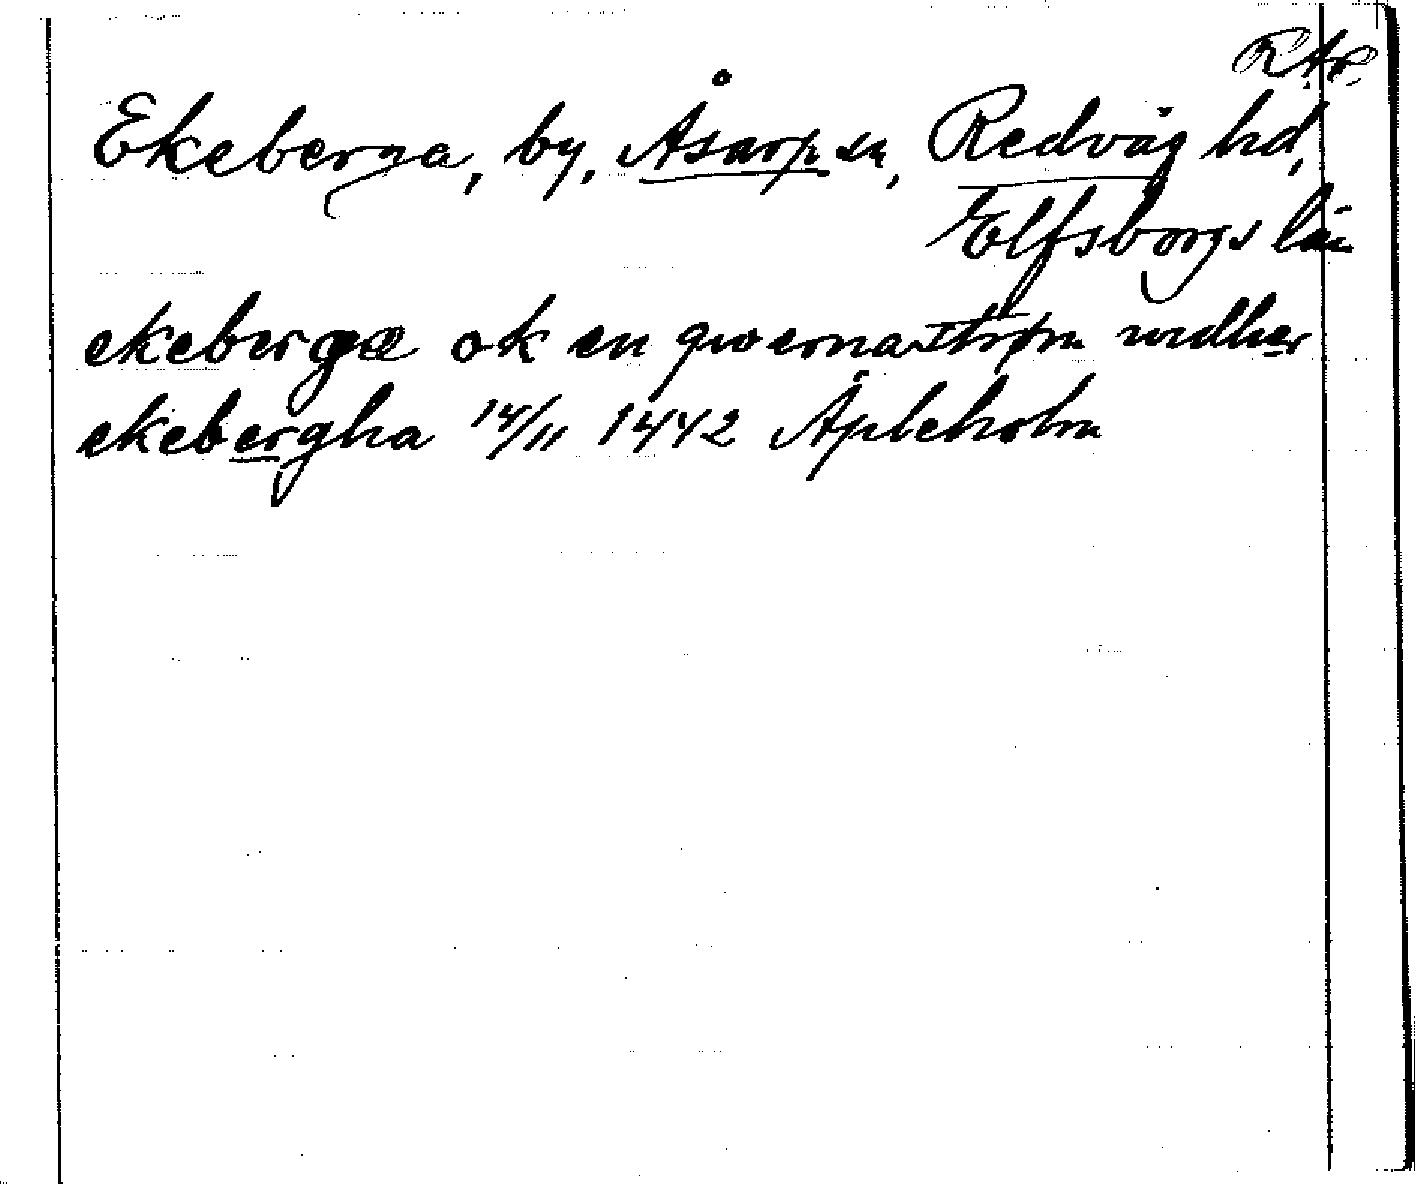 R.A.P.
Ekeberga, by, Åsarp sn, Redväg hd,
Elfsborgs län
ekebergæ ok en qwernastrøm widher
ekebergha 14/11 1442 Äpleholm